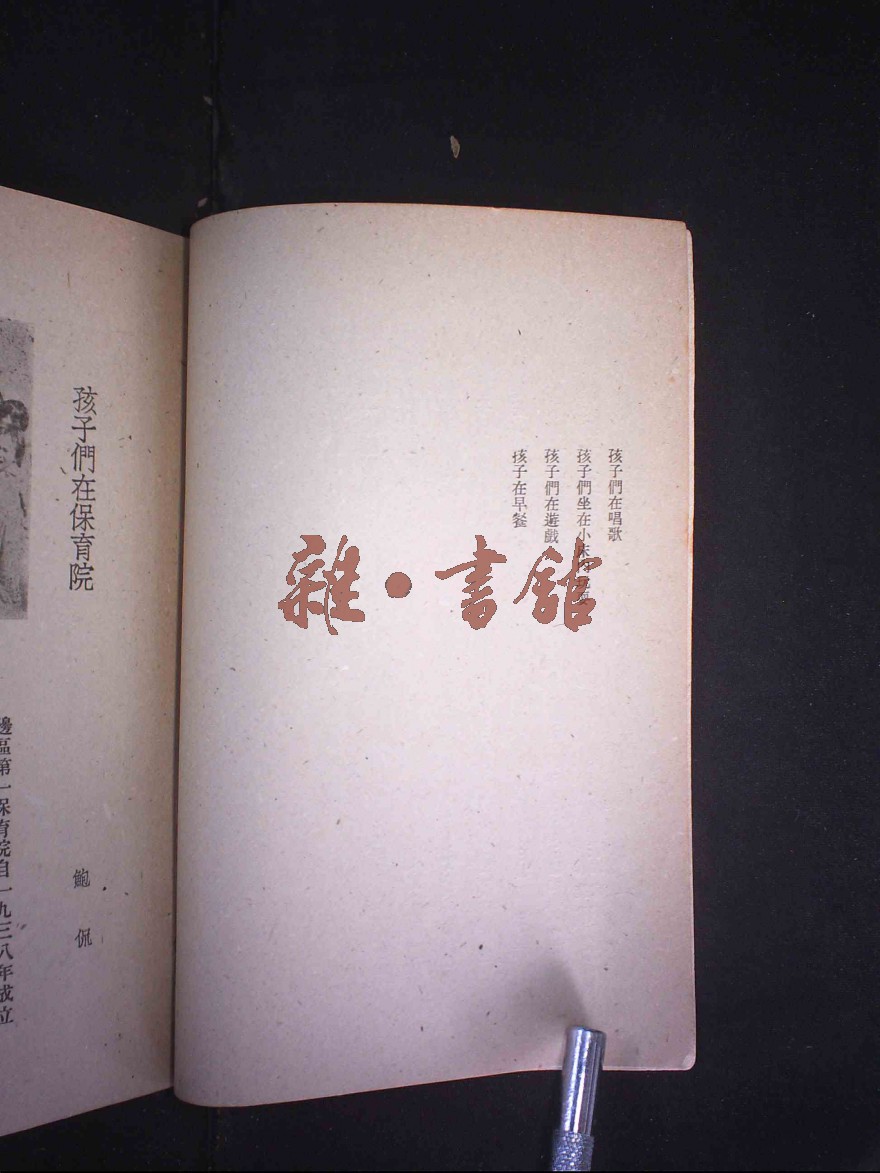 孩子們在唱歌
孩子們坐在小床
孩子們在遊戲
孩子在早餐
孩子們在保育院
鮑侃
邊區第一保育院自一九三八年成立
雜·書館